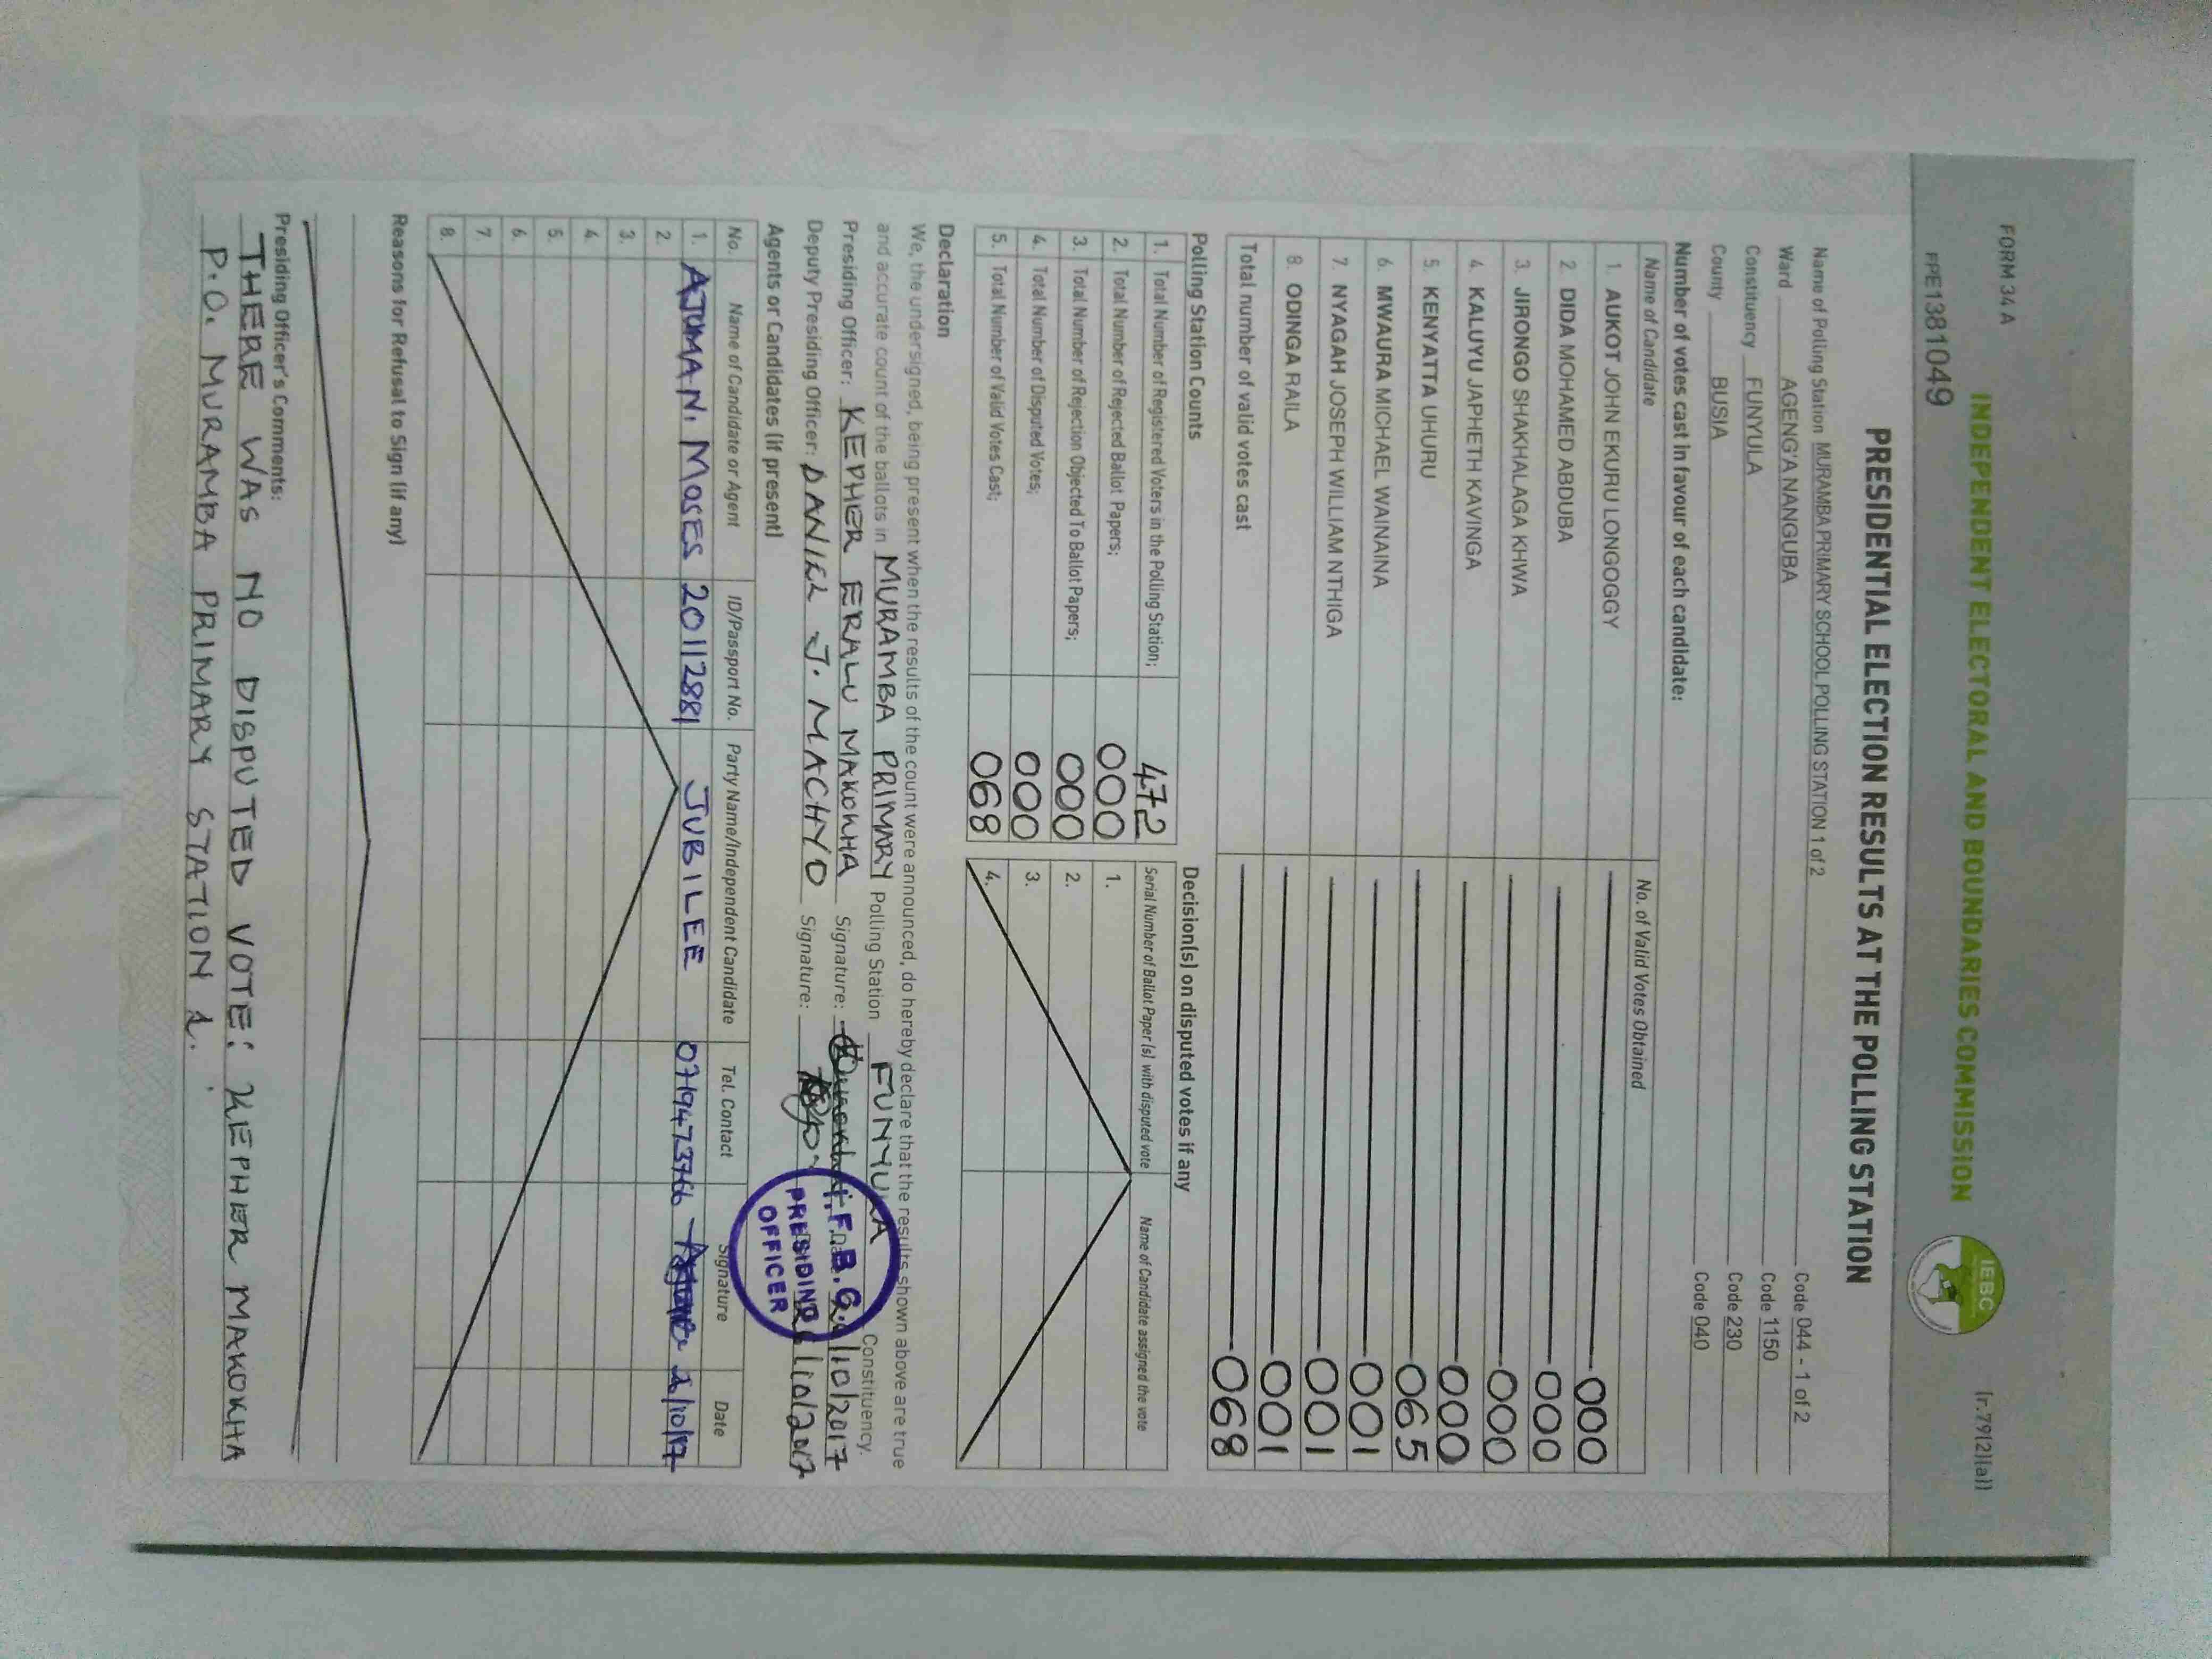 FORM 34 A
(r.79(2)(a))
INDEPENDENT ELECTORAL AND BOUNDARIES COMMISSION
IEBC
PPE1381049
PRESIDENTIAL ELECTION RESULTS AT THE POLLING STATION
Name of Polling Station MURAMBA PRIMARY SCHOOL POLLING STATION 1 of 2 Code 044 - 1 of 2
Ward AGENG'A NANGUBA Code 1150
Constituency FUNYULA Code 230
County BUSIA Code 040
Number of votes cast in favour of each candidate:
Name of Candidate No. of Valid Votes Obtained
1. AUKOT JOHN EKURU LONGOGGY 000
2. DIDA MOHAMED ABDUBA 000
3. JIRONGO SHAKHALAGA KHWA 000
4. KALUYU JAPHETH KAVINGA 000
5. KENYATTA UHURU 065
6. MWAURA MICHAEL WAINAINA 001
7. NYAGAH JOSEPH WILLIAM NTHIGA 001
8. ODINGA RAILA 001
Total number of valid votes cast 068
Polling Station Counts
1. Total Number of Registered Voters in the Polling Station; 472
2. Total Number of Rejected Ballot Papers; 000
3. Total Number of Rejection Objected To Ballot Papers; 000
4. Total Number of Disputed Votes; 000
5. Total Number of Valid Votes Cast; 068
Decision(s) on disputed votes if any
Serial Number of Ballot Paper (s) with disputed vote Name of Candidate assigned the vote
1.
2.
3.
4.
Declaration
We, the undersigned, being present when the results of the count were announced, do hereby declare that the results shown above are true
and accurate count of the ballots in MURAMBA PRIMARY Polling Station FUNYULA Constituency.
Presiding Officer: KEPHER ERALU MAKOKHA Signature: /10/2017
Deputy Presiding Officer: DANIEL J. MACHYO Signature: /10/2017
F.B.C.
PRESIDING
OFFICER
Agents or Candidates (if present)
No. Name of Candidate or Agent ID/Passport No. Party Name/Independent Candidate Tel. Contact Signature Date
1. AJUMA N. MOSES 20112881 JUBILEE 0719473766 2/10/17
2.
3.
4.
5.
6.
7.
8.
Reasons for Refusal to Sign (if any)
Presiding Officer's Comments:
THERE WAS NO DISPUTED VOTE: KEPHER MAKOKHA
P.O. MURAMBA PRIMARY STATION 1.